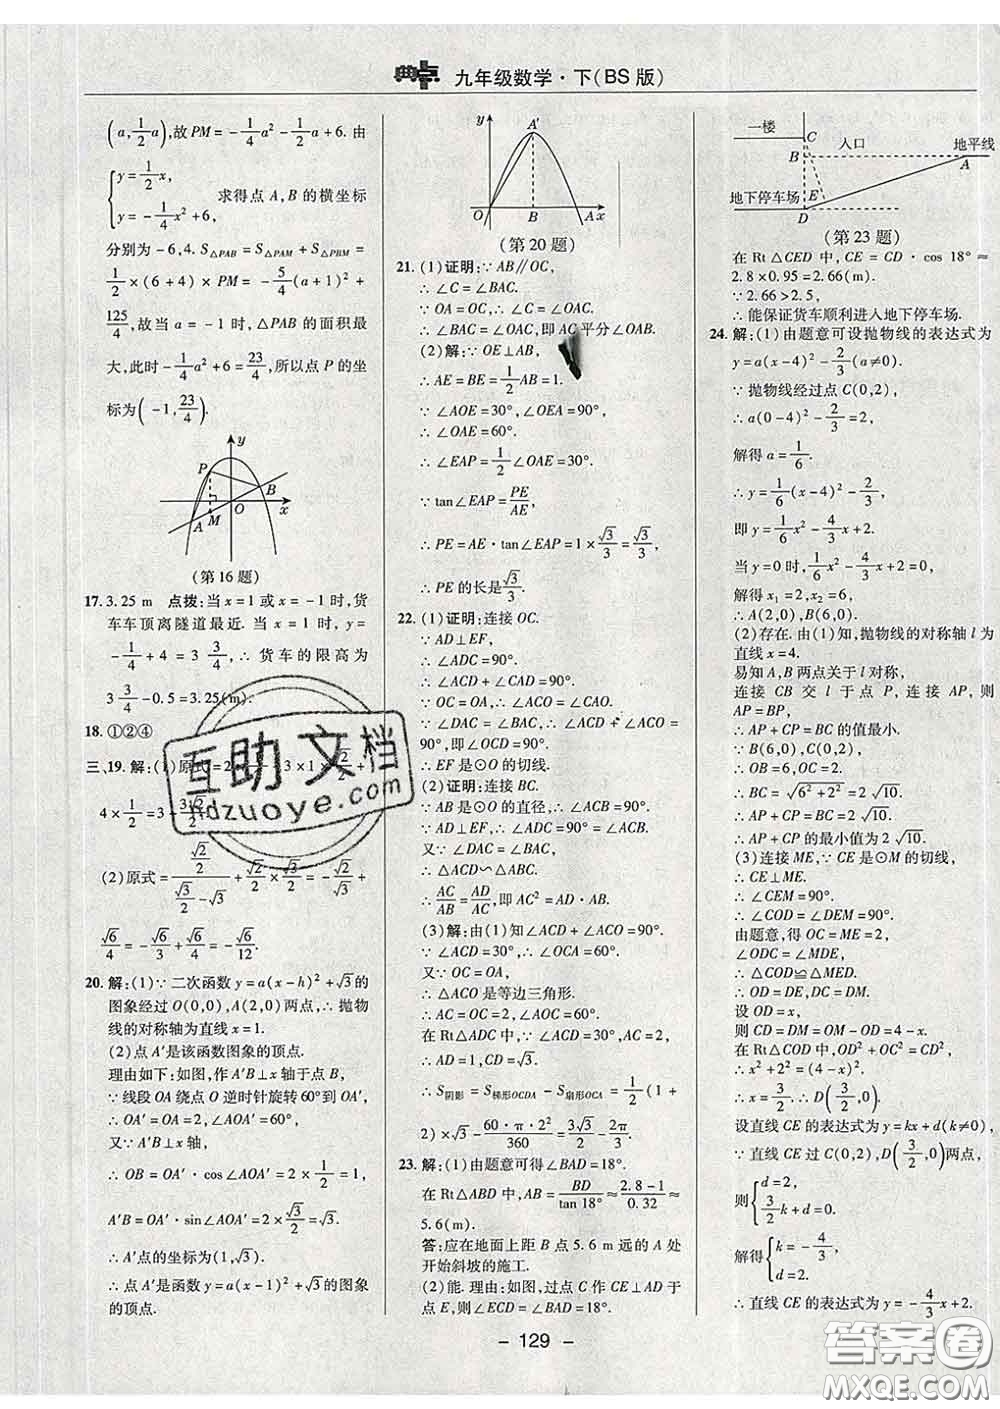 典点 九年级数学·下(BS版)
(a, 1/2 a),故PM=-1/4 a²-1/2 a+6. 由
{y=1/2 x, y=-1/4 x²+6, 求得点A,B的横坐标
分别为-6,4. S△PAB=S△PAM+S△PBM=
1/2×(6+4)×PM=-5/4(a+1)²+
125/4,故当a=-1时,△PAB的面积最
大,此时-1/4 a²-1/2 a+6=23/4,点P的坐
标为(-1, 23/4).
y
P
B
A M O x
(第16题)
17. 3.25 m 点拨:当x=1或x=-1时,货
车车顶离隧道最近. 当x=1时,y=
-1/4+4=3 3/4,∴货车的限高为
3 3/4-0.5=3.25(m).
18. ①②④
三、19. 解:(1)原式=2×
3×1×√2/2
4×1/2=3-3√2/2
(2)原式=(√2/2)/(√3/2-√3)+√2/2×√3/2=
√6/4=-√6/3+√6/4=-√6/12.
20. 解:(1)∵二次函数y=a(x-h)²+√3的
图象经过O(0,0),A(2,0)两点,∴抛物
线的对称轴为直线x=1.
(2)点A′是该函数图象的顶点.
理由如下:如图,作A′B⊥x轴于点B,
∵线段OA绕点O逆时针旋转60°到OA′,
∴OA′=OA=2,∠AOA′=60°,
又∵A′B⊥x轴,
∴OB=OA′·cos∠AOA′=2×1/2=1,
A′B=OA′·sin∠AOA′=2×√3/2=√3.
∴A′点的坐标为(1,√3).
∴点A′是函数y=a(x-1)²+√3的图象
的顶点.
y
A′
O B A x
(第20题)
21. (1)证明:∵AB∥OC,
∴∠C=∠BAC.
∵OA=OC,∴∠C=∠OAC.
∴∠BAC=∠OAC,即AC平分∠OAB.
(2)解:∵OE⊥AB,
∴AE=BE=1/2 AB=1.
∵∠AOE=30°,∠OEA=90°,
∴∠OAE=60°.
∴∠EAP=1/2∠OAE=30°.
∵tan∠EAP=PE/AE,
∴PE=AE·tan∠EAP=1×√3/3=√3/3,
∴PE的长是√3/3.
22. (1)证明:连接OC.
∵AD⊥EF,
∴∠ADC=90°.
∴∠ACD+∠CAD=90°.
∵OC=OA,∴∠ACO=∠CAO.
∵∠DAC=∠BAC,∴∠ACD+∠ACO=
90°,即∠OCD=90°.
∴EF是⊙O的切线.
(2)证明:连接BC.
∵AB为⊙O的直径,∴∠ACB=90°.
∵AD⊥EF,∴∠ADC=90°=∠ACB.
又∵∠DAC=∠BAC,
∴△ACD∽△ABC.
∴AC/AB=AD/AC,即AC²=AD·AB.
(3)解:由(1)知∠ACD+∠ACO=90°.
∵∠ACD=30°,∴∠OCA=60°.
又∵OC=OA,
∴△ACO是等边三角形.
∴AC=OC=2,∠AOC=60°.
在Rt△ADC中,∵∠ACD=30°,AC=2,
∴AD=1,CD=√3.
∴S阴影=S梯形OCDA-S扇形OCA=1/2(1+
2)×√3-60·π·2²/360=3√3/2-2π/3.
23. 解:(1)由题意可得∠BAD=18°.
在Rt△ABD中,AB=BD/tan 18°≈2.8-1/0.32≈
5.6(m).
答:应在地面上距B点5.6 m远的A处
开始斜坡的施工.
(2)能. 理由:如图,过点C作CE⊥AD于
点E,则∠ECD=∠BAD=18°.
一楼 C 入口 地平线
B A
地下停车场 E
D
(第23题)
在Rt△CED中,CE=CD·cos 18°≈
2.8×0.95=2.66(m).
∵2.66>2.5,
∴能保证货车顺利进入地下停车场.
24. 解:(1)由题意可设抛物线的表达式为
y=a(x-4)²-2/3(a≠0).
∵抛物线经过点C(0,2),
∴a(0-4)²-2/3=2,
解得a=1/6.
∴y=1/6(x-4)²-2/3,
即y=1/6 x²-4/3 x+2.
当y=0时,1/6 x²-4/3 x+2=0,
解得x₁=2,x₂=6,
∴A(2,0),B(6,0).
(2)存在. 由(1)知,抛物线的对称轴l为
直线x=4.
易知A,B两点关于l对称,
连接CB交l于点P,连接AP,则
AP=BP,
∴AP+CP=BC的值最小.
∵B(6,0),C(0,2),
∴OB=6,OC=2.
∴BC=√6²+2²=2√10.
∴AP+CP=BC=2√10.
∴AP+CP的最小值为2√10.
(3)连接ME,∵CE是⊙M的切线,
∴CE⊥ME.
∴∠CEM=90°.
∴∠COD=∠DEM=90°.
由题意,得OC=ME=2,
∠ODC=∠MDE,
∴△COD≌△MED.
∴OD=DE,DC=DM.
设OD=x,
则CD=DM=OM-OD=4-x.
在Rt△COD中,OD²+OC²=CD²,
∴x²+2²=(4-x)².
∴x=3/2.∴D(3/2,0).
设直线CE的表达式为y=kx+d(k≠0),
∵直线CE过C(0,2),D(3/2,0)两点,
则{d=2, 3/2 k+d=0.
解得{k=-4/3, d=2.
∴直线CE的表达式为y=-4/3 x+2.
- 129 -
互助文档
hdzuoye.com
答案圈
MXQE.COM